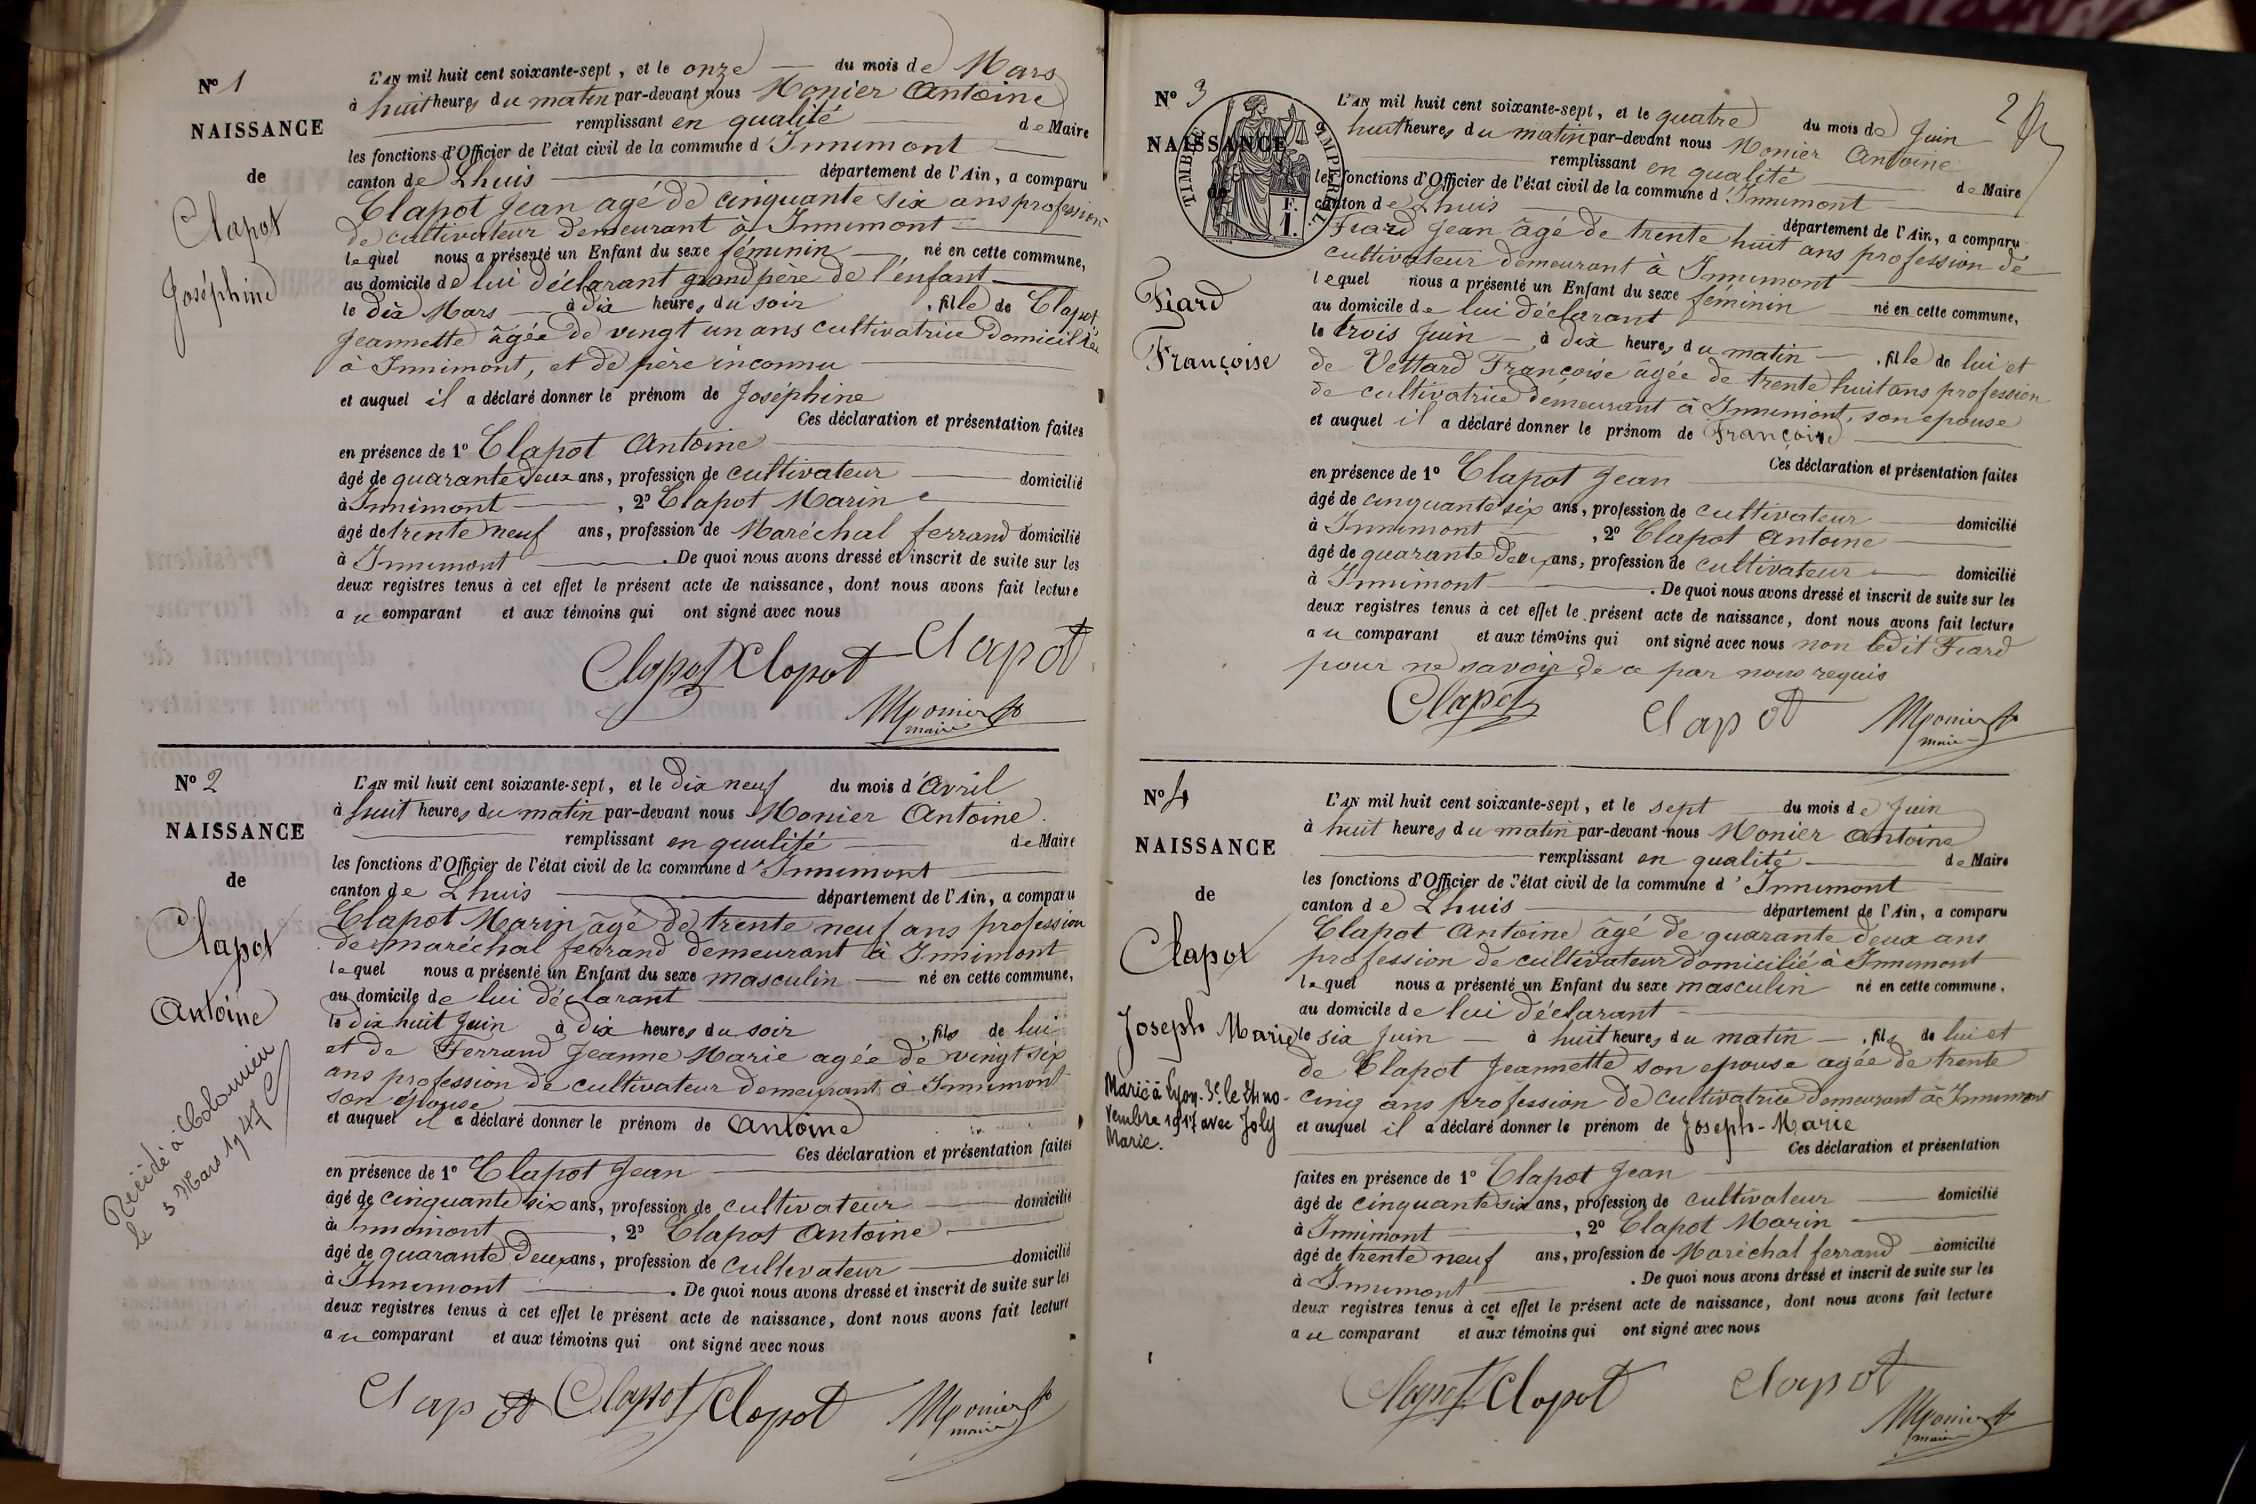 N° 1
NAISSANCE
de
Clapot
Joséphine
L'AN mil huit cent soixante-sept, et le onze du mois de Mars
à huit heures du matin par-devant nous Monier Antoine
remplissant en qualité de Maire
les fonctions d'Officier de l'état civil de la commune d'Innimont
canton de Lhuis département de l'Ain, a comparu
Clapot Jean agé de cinquante six ans profession
de cultivateur demeurant à Innimont
lequel nous a présenté un Enfant du sexe féminin né en cette commune,
au domicile de lui déclarant grand père de l'enfant
le dix Mars à dix heures du soir, fille de Clapot
Jeannette âgée de vingt un ans cultivatrice domiciliée
à Innimont, et de père inconnu
et auquel il a déclaré donner le prénom de Joséphine
Ces déclaration et présentation faites
en présence de 1° Clapot Antoine
âgé de quarante deux ans, profession de cultivateur domicilié
à Innimont, 2° Clapot Marin
âgé de trente neuf ans, profession de Maréchal ferrand domicilié
à Innimont. De quoi nous avons dressé et inscrit de suite sur les
deux registres tenus à cet effet le présent acte de naissance, dont nous avons fait lecture
au comparant et aux témoins qui ont signé avec nous
Clapot Clapot Clapot
Monier
maire
N° 2
NAISSANCE
de
Clapot
Antoine
Décédé à Colomieu
le 3 Mars 1947
L'AN mil huit cent soixante-sept, et le dix neuf du mois d'Avril
à huit heures du matin par-devant nous Monier Antoine
remplissant en qualité de Maire
les fonctions d'Officier de l'état civil de la commune d'Innimont
canton de Lhuis département de l'Ain, a comparu
Clapot Marin âgé de trente neuf ans profession
de maréchal ferrand demeurant à Innimont
lequel nous a présenté un Enfant du sexe masculin né en cette commune,
au domicile de lui déclarant
le dix huit Juin à dix heures du soir, fils de lui
et de Ferrand Jeanne Marie agée de vingt six
ans profession de cultivateur demeurant à Innimont
son épouse
et auquel il a déclaré donner le prénom de Antoine
Ces déclaration et présentation faites
en présence de 1° Clapot Jean
âgé de cinquante six ans, profession de cultivateur domicilié
à Innimont, 2° Clapot Antoine
âgé de quarante deux ans, profession de cultivateur domicilié
à Innimont. De quoi nous avons dressé et inscrit de suite sur les
deux registres tenus à cet effet le présent acte de naissance, dont nous avons fait lecture
au comparant et aux témoins qui ont signé avec nous
Clapot Clapot Clapot Monier
maire
2
N° 3
NAISSANCE
de
TIMBRE IMPERIAL
1 F.
Fiard
Françoise
L'AN mil huit cent soixante-sept, et le quatre du mois de Juin
huit heures du matin par-devant nous Monier Antoine
remplissant en qualité de Maire
les fonctions d'Officier de l'état civil de la commune d'Innimont
canton de Lhuis département de l'Ain, a comparu
Fiard Jean âgé de trente huit ans profession de
cultivateur demeurant à Innimont
lequel nous a présenté un Enfant du sexe féminin né en cette commune,
au domicile de lui déclarant
le trois Juin à dix heures du matin, fille de lui et
de Vettard Françoise âgée de trente huit ans profession
de cultivatrice demeurant à Innimont, son epouse
et auquel il a déclaré donner le prénom de Françoise
Ces déclaration et présentation faites
en présence de 1° Clapot Jean
âgé de cinquante six ans, profession de cultivateur domicilié
à Innimont, 2° Clapot Antoine
âgé de quarante deux ans, profession de cultivateur domicilié
à Innimont. De quoi nous avons dressé et inscrit de suite sur les
deux registres tenus à cet effet le présent acte de naissance, dont nous avons fait lecture
au comparant et aux témoins qui ont signé avec nous non ledit Fiard
pour ne savoir de ce par nous requis
Clapot Clapot Monier
maire
N° 4
NAISSANCE
de
Clapot
Joseph Marie
Marié à Lyon 3e le 24 no-
vembre 1917 avec Joly
Marie.
L'AN mil huit cent soixante-sept, et le sept du mois de Juin
à huit heures du matin par-devant nous Monier Antoine
remplissant en qualité de Maire
les fonctions d'Officier de l'état civil de la commune d'Innimont
canton de Lhuis département de l'Ain, a comparu
Clapot Antoine âgé de quarante deux ans
profession de cultivateur domicilié à Innimont
lequel nous a présenté un Enfant du sexe masculin né en cette commune,
au domicile de lui déclarant
le six Juin à huit heures du matin, fils de lui et
de Clapot Jeannette son epouse agée de trente
cinq ans profession de cultivatrice demeurant à Innimont
et auquel il a déclaré donner le prénom de Joseph-Marie
Ces déclaration et présentation
faites en présence de 1° Clapot Jean
âgé de cinquante six ans, profession de cultivateur domicilié
à Innimont, 2° Clapot Marin
âgé de trente neuf ans, profession de Maréchal ferrand domicilié
à Innimont. De quoi nous avons dressé et inscrit de suite sur les
deux registres tenus à cet effet le présent acte de naissance, dont nous avons fait lecture
au comparant et aux témoins qui ont signé avec nous
Clapot Clapot Clapot
Monier
maire